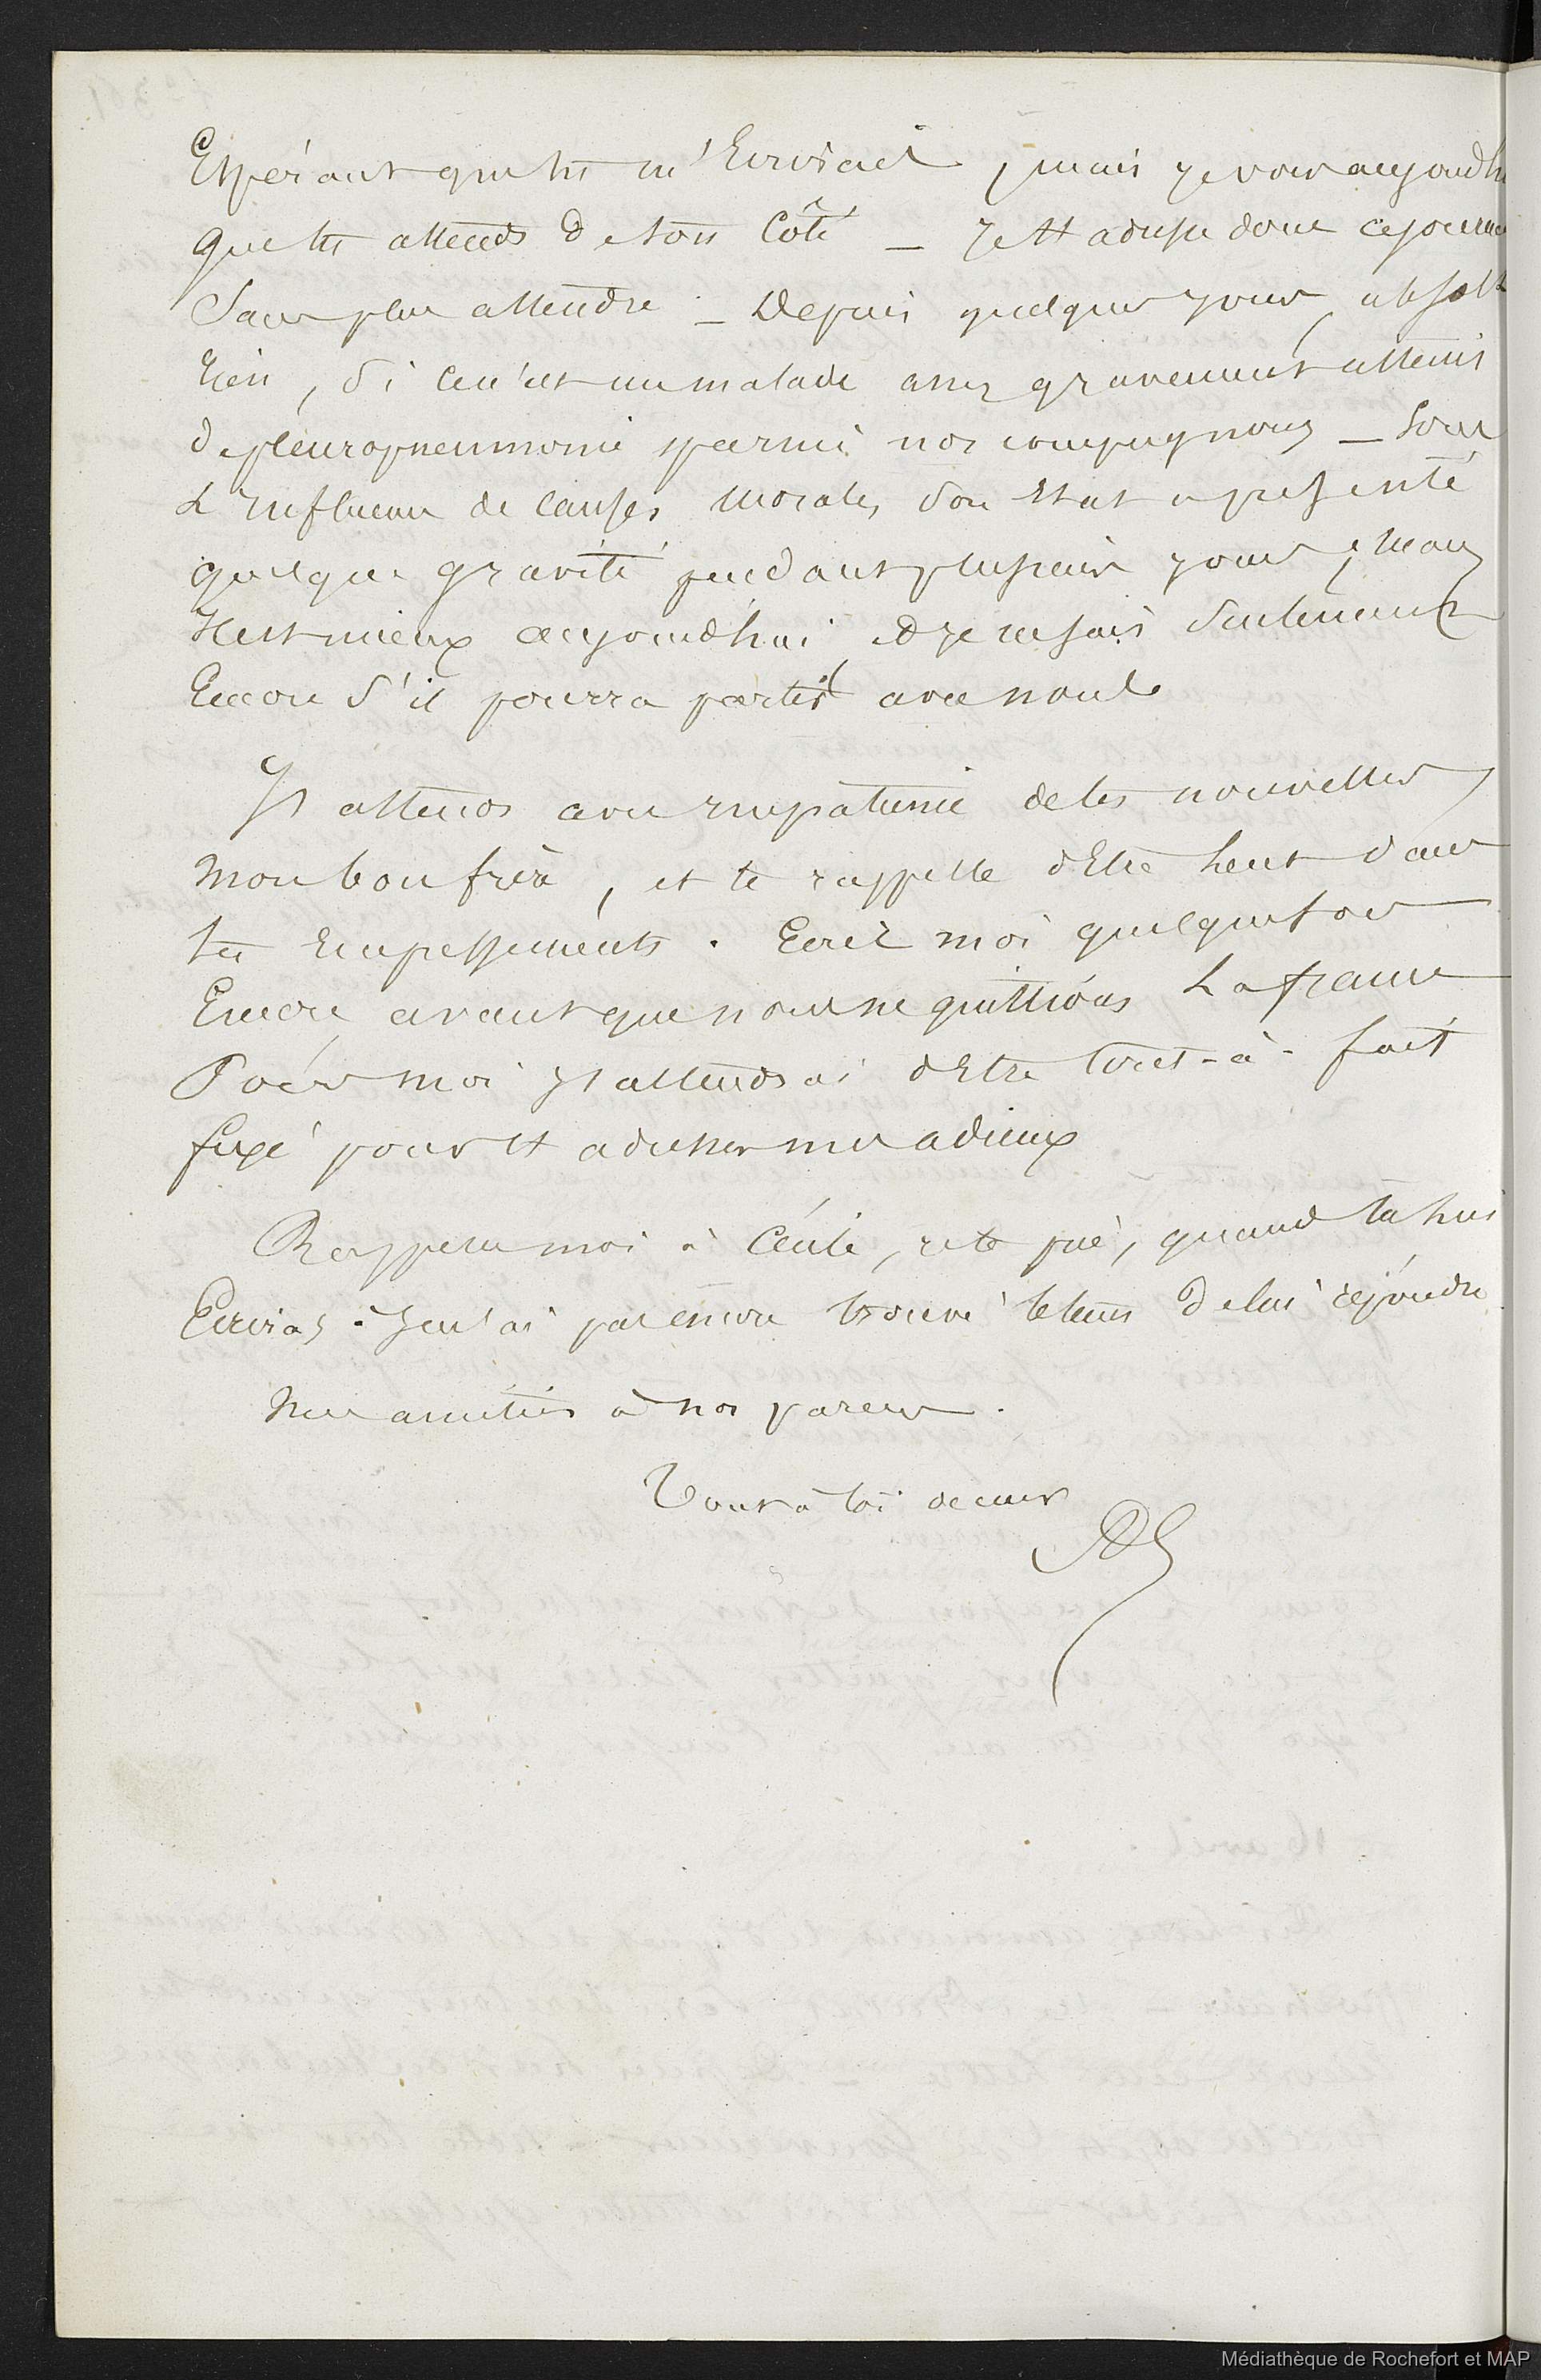 Espérant que tu m'écrirais, mais je vois aujourd'hu
que tu attends de ton côté _ Je t'adresse donc ce journa
Sans plus attendre _ Depuis quelques jours, absolt
Rien, Si ce n'est un malade assez gravement atteint
de pleuropneumonie parmi nos compagnons _ Sous
L'influence de causes morales, son état a présenté
quelque gravité pendant plusieurs jours, mais
Il est mieux aujourd'hui et je ne sais seulement
Encore s'il pourra partir avec nous
J'attends avec impatience de tes nouvelles
mon bon frère, et te rappelle d'être lent dans
tes empressements. Ecris moi quelquefois
Encore avant que nous ne quittions La france
Pour moi j'attendrai d'être tout-à-fait
fixé pour t'adresser mes adieux
Rappelle moi à Cécile, je te prie, quand tu lui
Ecriras. Je n'ai pas encore trouvé le tems de lui répondre
Mes amitiés à nos parens.
Tout à toi de cœur
Médiathèque de Rochefort et MAP